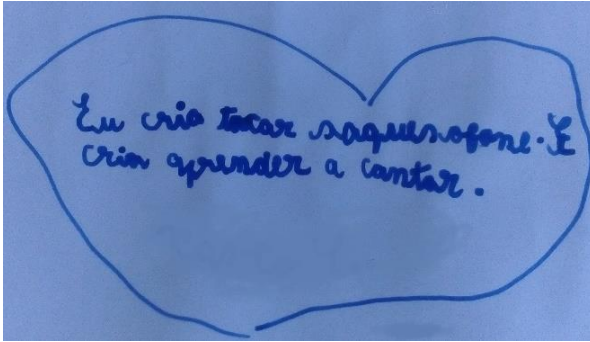 Eu cria tocar saquesofone. E
cria aprender a cantar.